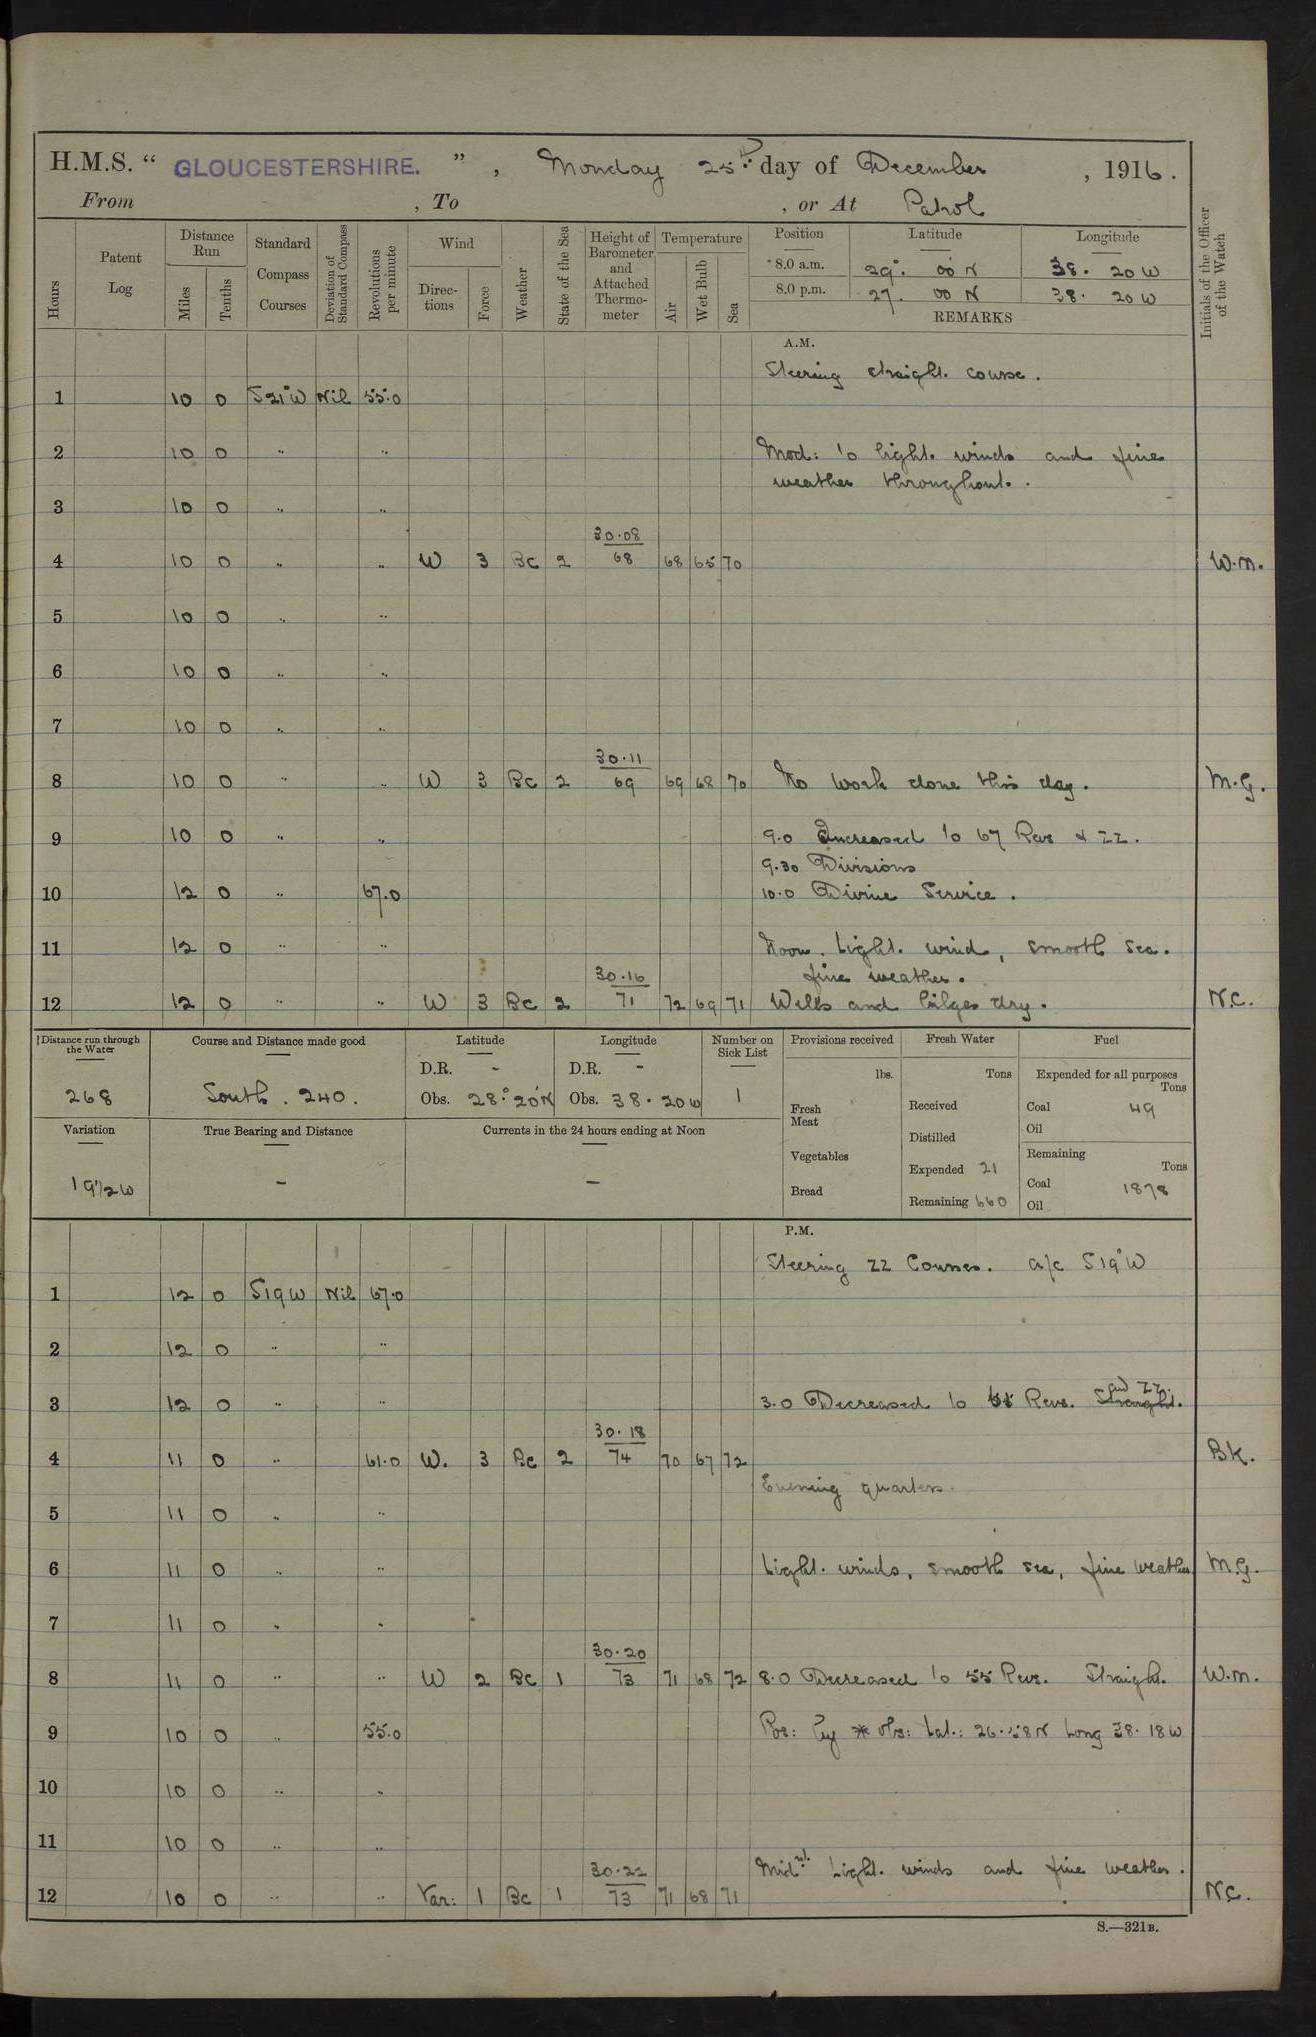 H.M.S. “ GLOUCESTERSHIRE. ” , Monday 25th day of December , 1916 .
From , To , or At Patrol
Hours
Patent Log
Distance Run
Miles
Tenths
Standard Compass Courses
Deviation of Standard Compass
Revolutions per minute
Wind
Direc-tions
Force
Weather
State of the Sea
Height of Barometer and Attached Thermo-meter
Temperature
Air
Wet Bulb
Sea
Position Latitude Longitude
8.0 a.m. 29°. 00 N 38. 20 W
8.0 p.m. 27. 00 N 38. 20 W
REMARKS
Initials of the Officer of the Watch
A.M.
Steering straight course.
1 10 0 S21°W Nil 55.0
2 10 0 " " Mod: to light winds and fine
weather throughout.
3 10 0 " "
30.08
4 10 0 " " W 3 Bc 2 68 68 65 70 W.M.
5 10 0 " "
6 10 0 " "
7 10 0 " "
30.11
8 10 0 " " W 3 Bc 2 69 69 68 70 No work done this day. M.G.
9 10 0 " " 9.0 Increased to 67 Revs & ZZ.
9.30 Divisions
10 12 0 " 67.0 10.0 Divine Service.
11 12 0 " " Noon. Light wind, smooth sea.
30.16 fine weather.
12 12 0 " " W 3 Bc 2 71 72 69 71 Wells and bilges dry. N.C.
Distance run through the Water
268
Course and Distance made good
South. 240.
Latitude
D.R. -
Obs. 28°20'N
Longitude
D.R. -
Obs. 38. 20W
Number on Sick List
1
Provisions received
lbs.
Fresh Meat
Vegetables
Bread
Fresh Water
Tons
Received
Distilled
Expended 21
Remaining 660
Fuel
Expended for all purposes
Tons
Coal 49
Oil
Remaining
Tons
Coal 1878
Oil
Variation
19½W
True Bearing and Distance
-
Currents in the 24 hours ending at Noon
-
P.M.
Steering ZZ Courses. a/c S19°W
1 12 0 S19W Nil 67.0
2 12 0 " "
and ZZ.
3 12 0 " " 3.0 Decreased to 61 Revs. Straight.
30.18
4 11 0 " 61.0 W. 3 Bc 2 74 70 67 72 BK.
Evening quarters.
5 11 0 " "
6 11 0 " " Light winds, smooth sea, fine weather M.G.
7 11 0 " "
30.20
8 11 0 " " W 2 Bc 1 73 71 68 72 8.0 Decreased to 55 Revs. Straight. W.M.
9 10 0 " 55.0 Pos: by * obs: Lat.: 26.58N Long 38. 18W
10 10 0 " "
11 10 0 " "
30.22 Midnt. Light winds and fine weather.
12 10 0 " " Var: 1 Bc 1 73 71 68 71 N.C.
S.—321B.